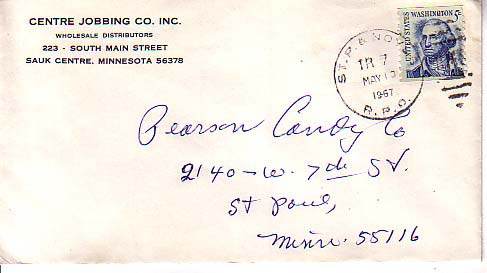 CENTRE JOBBING CO. INC.
WHOLESALE DISTRIBUTORS
223 - SOUTH MAIN STREET
SAUK CENTRE, MINNESOTA 56378
ST. P. & NOY
TR 7
MAY 19
1967
R.P.O.
UNITED STATES
WASHINGTON 5¢
Pearson Candy Co
2140 - W. 7th St.
St Paul,
Minn. 55116